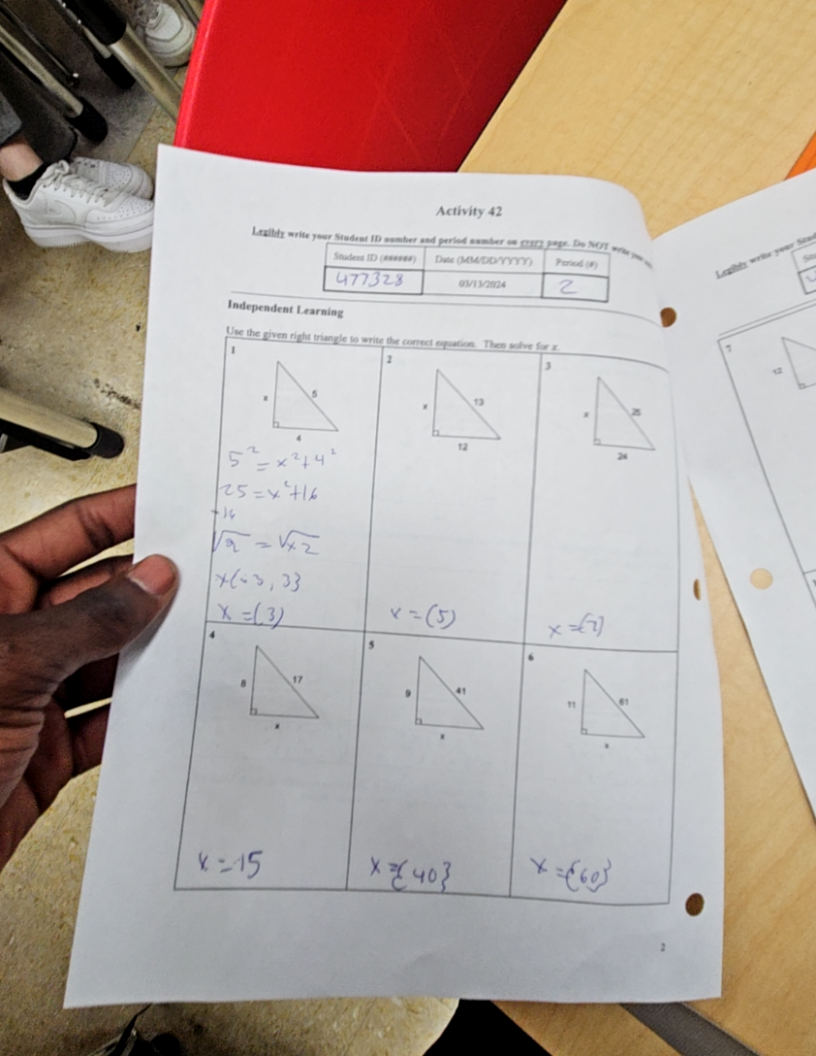 Activity 42
Legibly write your Student ID number and period number on every page. Do NOT write your
Student ID (######) Date (MM/DD/YYYY) Period (#)
477328 03/13/2024 2
Independent Learning
Use the given right triangle to write the correct equation. Then solve for x.
1
x 5
4
5² = x² + 4²
25 = x² + 16
-16
√9 = √x2
x{-3, 3}
x = (3)
2
x 13
12
x = (5)
3
x 25
24
x = {7}
4
8 17
x
x = 15
5
9 41
x
x = {40}
6
11 61
x
x = {60}
2
Legibly write your Stud
7
12